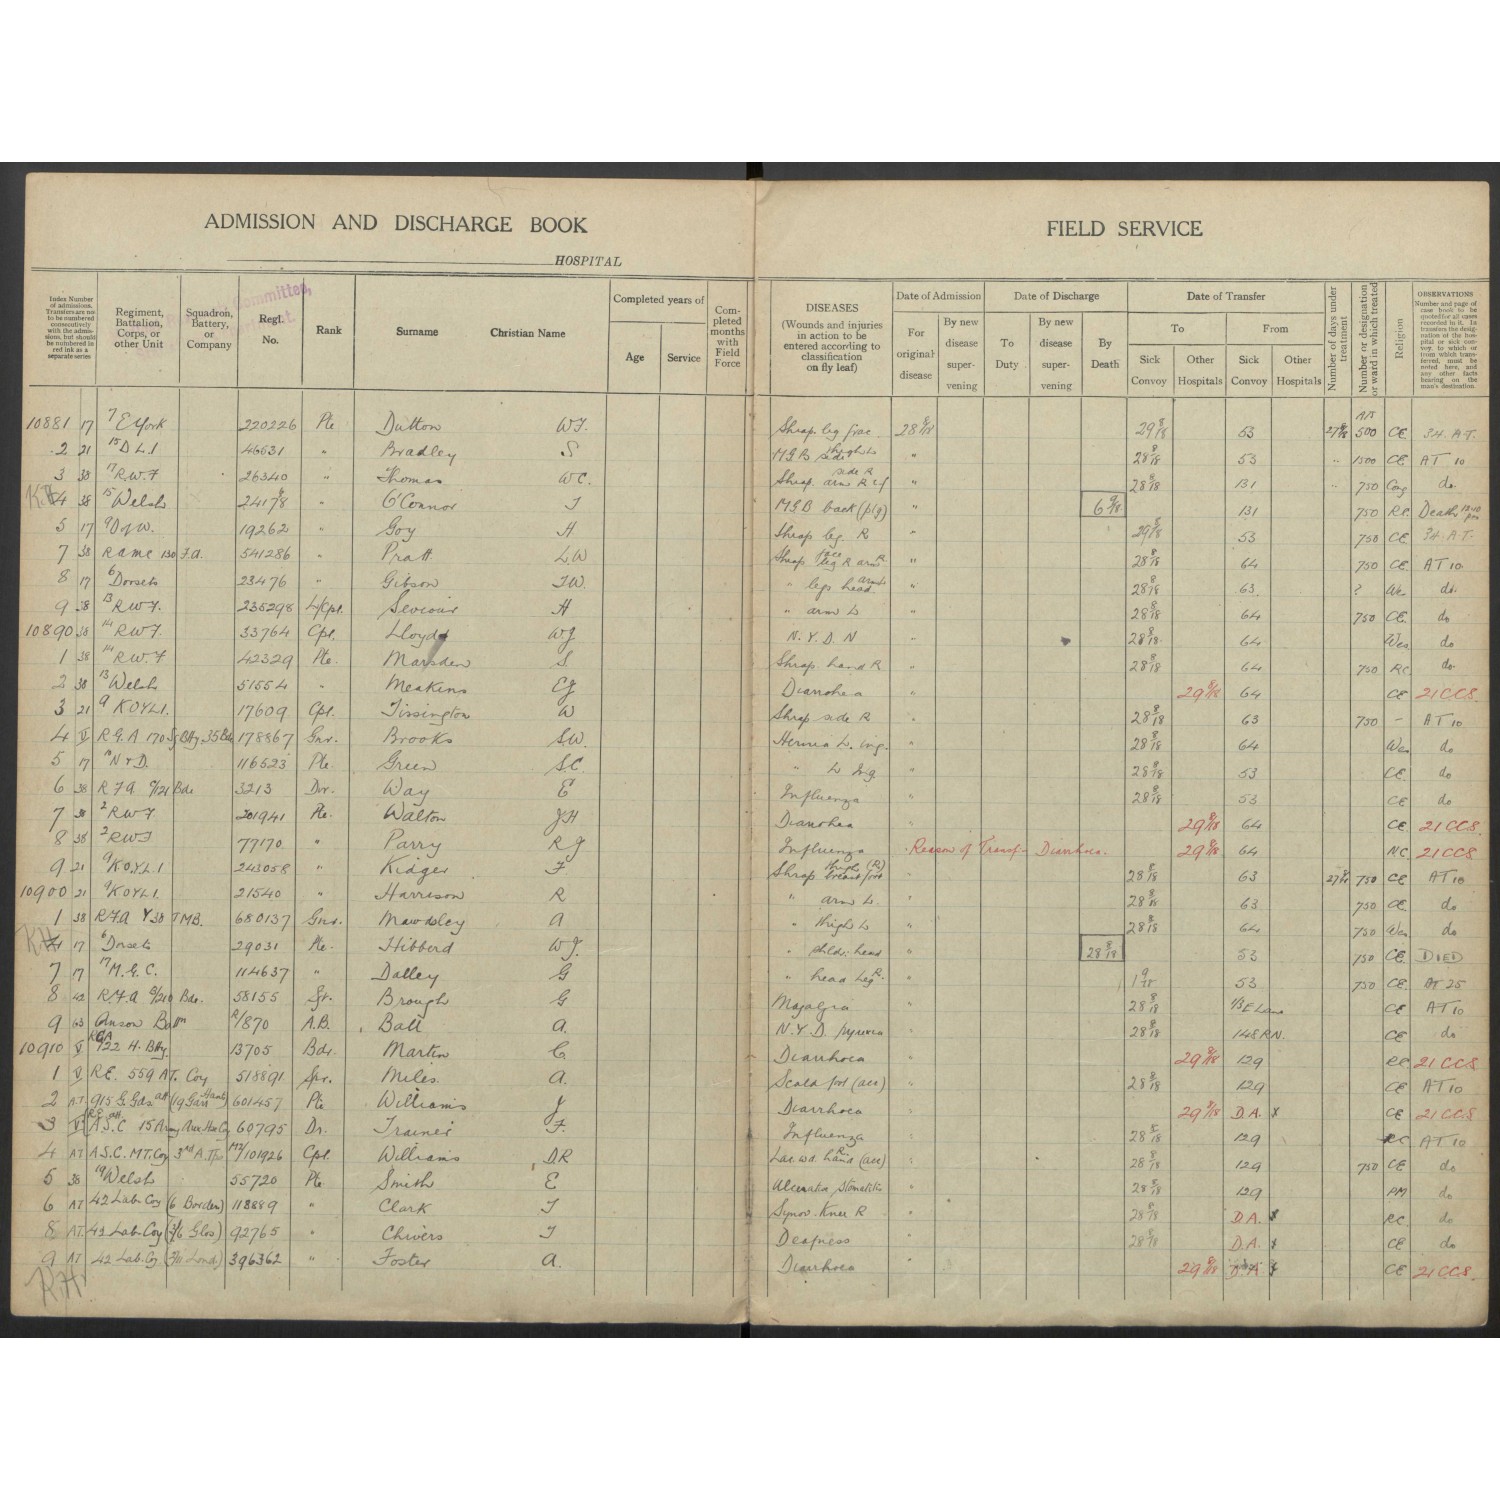 ADMISSION AND DISCHARGE BOOK
HOSPITAL
FIELD SERVICE
Index Number of admissions. Transfers are not to be numbered consecutively with the admissions, but should be numbered in red ink as a separate series
Regiment, Battalion, Corps, or other Unit
Squadron, Battery, or Company
Regl. No.
Rank
Surname
Christian Name
Completed years of
Age
Service
Completed months with Field Force
DISEASES
(Wounds and injuries in action to be entered according to classification on fly leaf)
Date of Admission
For original disease
By new disease supervening
Date of Discharge
To Duty
By new disease supervening
By Death
Date of Transfer
To
From
Sick Convoy
Other Hospitals
Sick Convoy
Other Hospitals
Number of days under treatment
Number or designation of ward in which treated
Religion
OBSERVATIONS
Number and page of case book to be quoted for all cases recorded in it. In transfers the designation of the hospital or sick convoy to which or from which transferred, must be noted here, and any other facts bearing on the man's destination.
10881 17 7 E York 220226 Pte Dutton W.F. Shrap leg frac 28/8/18 29/8/18 53 27/8/18 500 CE 34 A.T.
2 21 15 D.L.I 46631 " Bradley S MGB side thigh L " 28/8/18 53 " 1500 CE AT 10
3 38 17 R.W.F 26340 " Thomas W.C. Shrap. arm R side R " 28/8/18 131 " 750 Cong do.
4 38 15 Welsh 24178 " O'Connor T MGB back (plg) " 6/9/18 131 750 R.C. Death
5 17 9 D of W. 19262 " Goy H Shrap leg. R " 29/8/18 53 750 CE 34 A.T.
7 38 RAMC 130 F.A. 541286 " Pratt L.W Shrap face leg R arm R " 28/8/18 64 750 CE AT 10
8 17 6 Dorsets 23476 " Gibson T.W. " legs head arms " 28/8/18 63 ? We do.
9 38 13 R.W.F. 235298 L/Cpl. Seviour H " arm L " 28/8/18 64 750 CE. do
10890 38 14 R.W.F. 33764 Cpl. Lloyd WJ N.Y.D.N " 28/8/18 64 Wes do
1 38 14 R.W.F 42329 Pte. Marsden S Shrap. hand R " 28/8/18 64 750 RC do.
2 38 13 Welsh 51554 " Meakins CJ Diarrhea " 29/8/18 64 CE 21 CCS
3 21 9 KOYLI. 17609 Cpl. Tissington W Shrap side R " 28/8/18 63 750 - AT 10
4 V R.G.A 170 Sg Btty 35 Bde 178867 Gnr. Brooks S.W. Hernia L. ing. " 28/8/18 64 Wes do
5 17 10 N & D. 116523 Pte. Green S.C. " L Ing. " 28/8/18 53 CE. do
6 38 RFA C/121 Bde 3213 Dvr. Way E Influenza " 28/8/18 53 CE do
7 38 2 RWF 201941 Pte. Walton JH Diarrhea " 29/8/18 64 CE. 21 CCS.
8 38 2 RWF 77170 " Parry RJ Influenza Reason of Transf- Diarrhea. 29/8/18 64 NC 21 CCS
9 21 9 K.O.Y.L.I 243058 " Kidger F Shrap thigh (R) " 28/8/18 63 27/8/18 750 CE AT 10
10900 21 9 KOYLI. 21540 " Harrison R " arm L. " 28/8/18 63 750 CE. do
1 38 RFA Y 38 TMB. 680137 Gnr. Mawdsley A " thigh L " 28/8/18 64 750 Wes do
K.H 17 6 Dorsets 29031 Pte. Hibberd WJ. " shldr. head " 28/8/18 53 750 CE. DIED
7 17 17 M.G.C. 114637 " Dalley G " head leg R. " 1/9/18 53 750 CE. AT 25
8 42 RFA C/210 Bde. 58155 Sjt. Brough G Myalgia " 28/8/18 1/3 E Lancs CE AT 10
9 63 Anson Battn R/870 A.B. Ball A. N.Y.D. Pyrexia " 28/8/18 148 R.N. CE do
10910 V RGA 122 H. Btty. 13705 Bdr. Martin C Diarrhoea " 29/8/18 129 RC 21 CCS
1 V R.E. 559 AT. Coy 518891 Spr. Miles. A. Scald foot (acc) " 28/8/18 129 CE AT 10
2 A.T 915 G. Gds att (19 Garr Hants) 601457 Pte Williams J Diarrhoea " 29/8/18 D.A. x CE 21 CCS
3 V A.S.C 15 Army Aux Hse Coy 60795 Dr. Trainer F. Influenza " 28/8/18 129 RC AT 10
4 AT A.S.C. M.T. Coy 3rd A. Tps M2/101926 Cpl. Williams DR Lac. wd. hand R (acc) " 28/8/18 129 750 CE do
5 38 19 Welsh 55720 Pte Smith E Ulcerative Stomatitis 28/8/18 129 PM do
6 AT 42 Lab. Coy (6 Border) 113889 " Clark T Synov. Knee R " 28/8/18 D.A. x RC. do
8 AT. 42 Lab. Coy (2/6 Glos) 92765 " Chivers T Deafness " 28/8/18 D.A. x CE do
9 AT 42 Lab. Coy (7/11 Lond) 396362 " Foster A. Diarrhoea " 29/8/18 D.A x CE 21 CCS.
K.H.